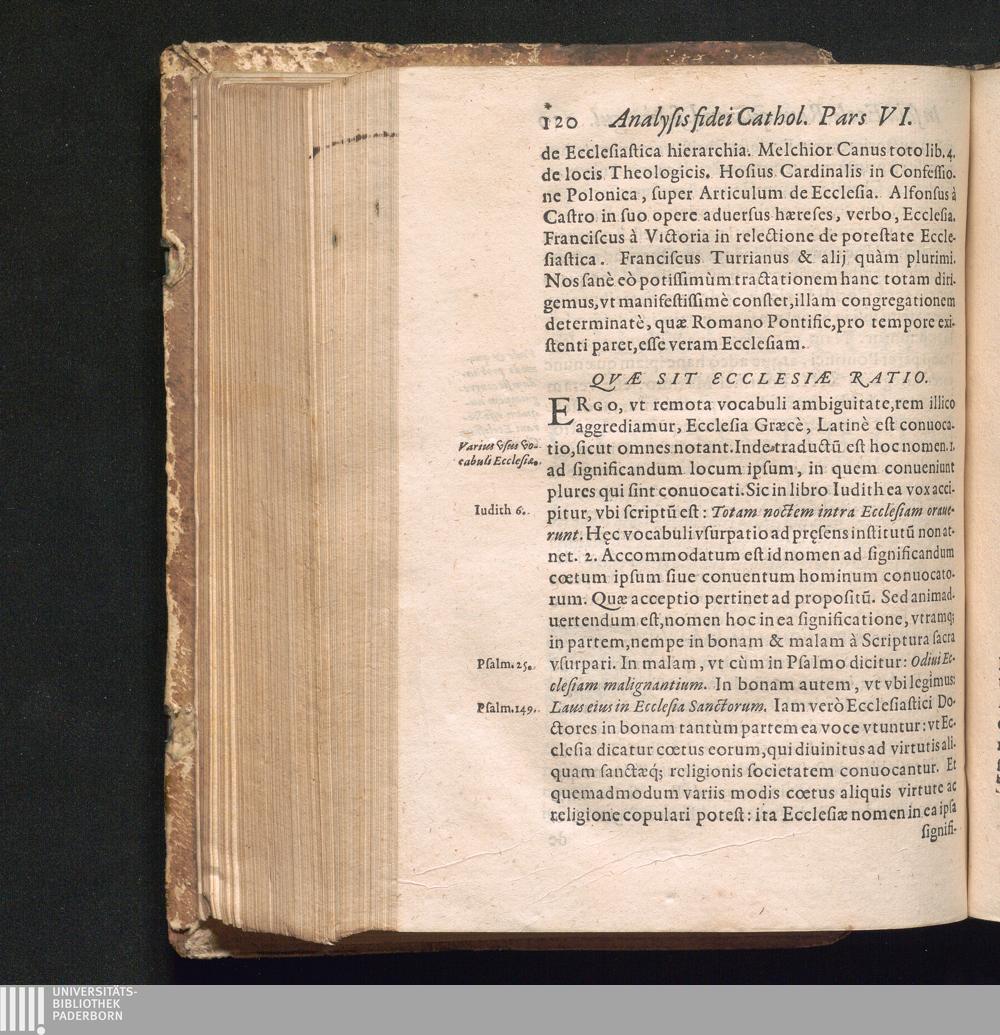 120 Analyſis fidei Cathol. Pars VI.
de Eccleſiaſtica hierarchia. Melchior Canus toto lib. 4.
de locis Theologicis. Hoſius Cardinalis in Confeſſio-
ne Polonica, ſuper Articulum de Eccleſia. Alfonſus à
Caſtro in ſuo opere aduerſus hæreſes, verbo, Eccleſia.
Franciſcus à Victoria in relectione de poteſtate Eccle-
ſiaſtica. Franciſcus Turrianus & alij quàm plurimi.
Nos ſanè eò potiſſimùm tractationem hanc totam diri-
gemus, vt manifeſtiſſimè conſtet, illam congregationem
determinatè, quæ Romano Pontific, pro tempore exi-
ſtenti paret, eſſe veram Eccleſiam.
QVÆ SIT ECCLESIÆ RATIO.
ERGO, vt remota vocabuli ambiguitate, rem illico
aggrediamur, Eccleſia Græcè, Latinè eſt conuoca-
Varius vſus vo-
cabuli Eccleſiæ.
tio, ſicut omnes notant. Inde traductū eſt hoc nomen. 1.
ad ſignificandum locum ipſum, in quem conueniunt
plures qui ſint conuocati. Sic in libro Iudith ea vox acci-
Iudith 6.
pitur, vbi ſcriptū eſt: Totam noctem intra Eccleſiam oraue-
runt. Hęc vocabuli vſurpatio ad pręſens inſtitutū non at-
net. 2. Accommodatum eſt id nomen ad ſignificandum
cœtum ipſum ſiue conuentum hominum conuocato-
rum. Quæ acceptio pertinet ad propoſitū. Sed animad-
uertendum eſt, nomen hoc in ea ſignificatione, vtramq;
in partem, nempe in bonam & malam à Scriptura ſacra
Pſalm. 25.
vſurpari. In malam, vt cùm in Pſalmo dicitur: Odiui Ec-
cleſiam malignantium. In bonam autem, vt vbi legimus:
Pſalm. 149.
Laus eius in Eccleſia Sanctorum. Iam verò Eccleſiaſtici Do-
ctores in bonam tantùm partem ea voce vtuntur: vt Ec-
cleſia dicatur cœtus eorum, qui diuinitus ad virtutis ali-
quam ſanctæq; religionis ſocietatem conuocantur. Et
quemadmodum variis modis cœtus aliquis virtute ac
religione copulari poteſt: ita Eccleſiæ nomen in ea ipſa
ſignifi-
UNIVERSITÄTS-
BIBLIOTHEK
PADERBORN